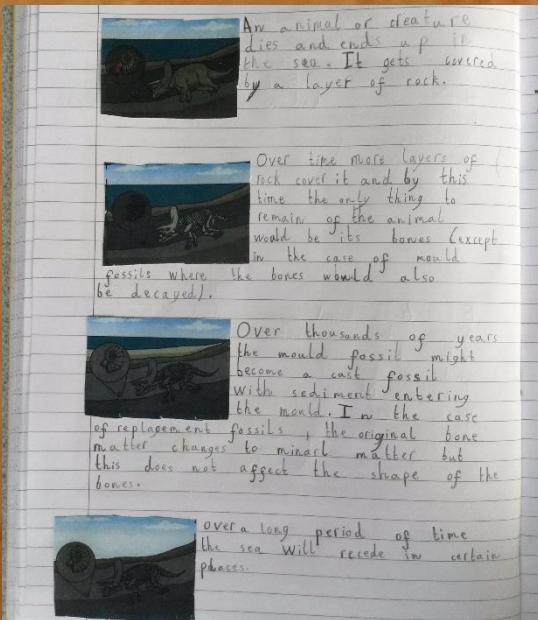 An animal or creature
dies and ends up in
the sea. It gets covered
by a layer of rock.
Over time more layers of
rock cover it and by this
time the only thing to
remain of the animal
would be its bones (except
in the case of mould
fossils where the bones would also
be decayed).
Over thousands of years
the mould fossil might
become a cast fossil
with sediment entering
the mould. In the case
of replacement fossils, the original bone
matter changes to minarl matter but
this does not affect the shape of the
bones.
over a long period of time
the sea will recede in certain
places.